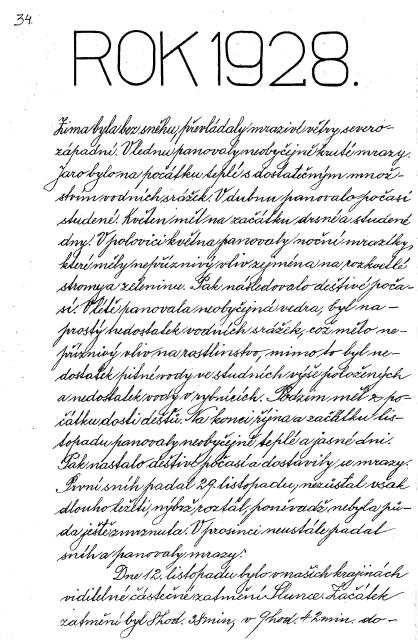 34.
ROK 1928.
Zima byla bez sněhu, převládaly mrazivé větry severo-
západní. V lednu panovaly neobyčejně kruté mrazy.
Jaro bylo na počátku teplé s dostatečným množ-
stvím vodních srážek. V dubnu panovalo počasí
studené. Květen měl na začátku drsné a studené
dny. V polovici května panovaly noční mrazíky,
které měly nepříznivý vliv zejména na rozkvetlé
stromy a zeleninu. Pak následovalo deštivé poča-
sí. V létě panovala neobyčejná vedra, byl na-
prostý nedostatek vodních srážek, což mělo ne-
příznivý vliv na rostlinstvo, mimo to byl ne-
dostatek pitné vody ve studních výše položených
a nedostatek vody v rybnících. Podzim měl z po-
čátku dosti dešťů. Na konci října a začátku lis-
topadu panovaly neobyčejně teplé a jasné dni.
Pak nastalo deštivé počasí a dostavily se mrazy.
První sníh padal 29. listopadu, nezůstal však
dlouho ležeti, nýbrž roztál, poněvadž nebyla pů-
da ještě zmrznuta. V prosinci neustále padal
sníh a panovaly mrazy.
Dne 12. listopadu bylo v našich krajinách
viditelné částečné zatmění Slunce. Začátek
zatmění byl 8 hod. 28 min, v 9 hod. 42 min. do-